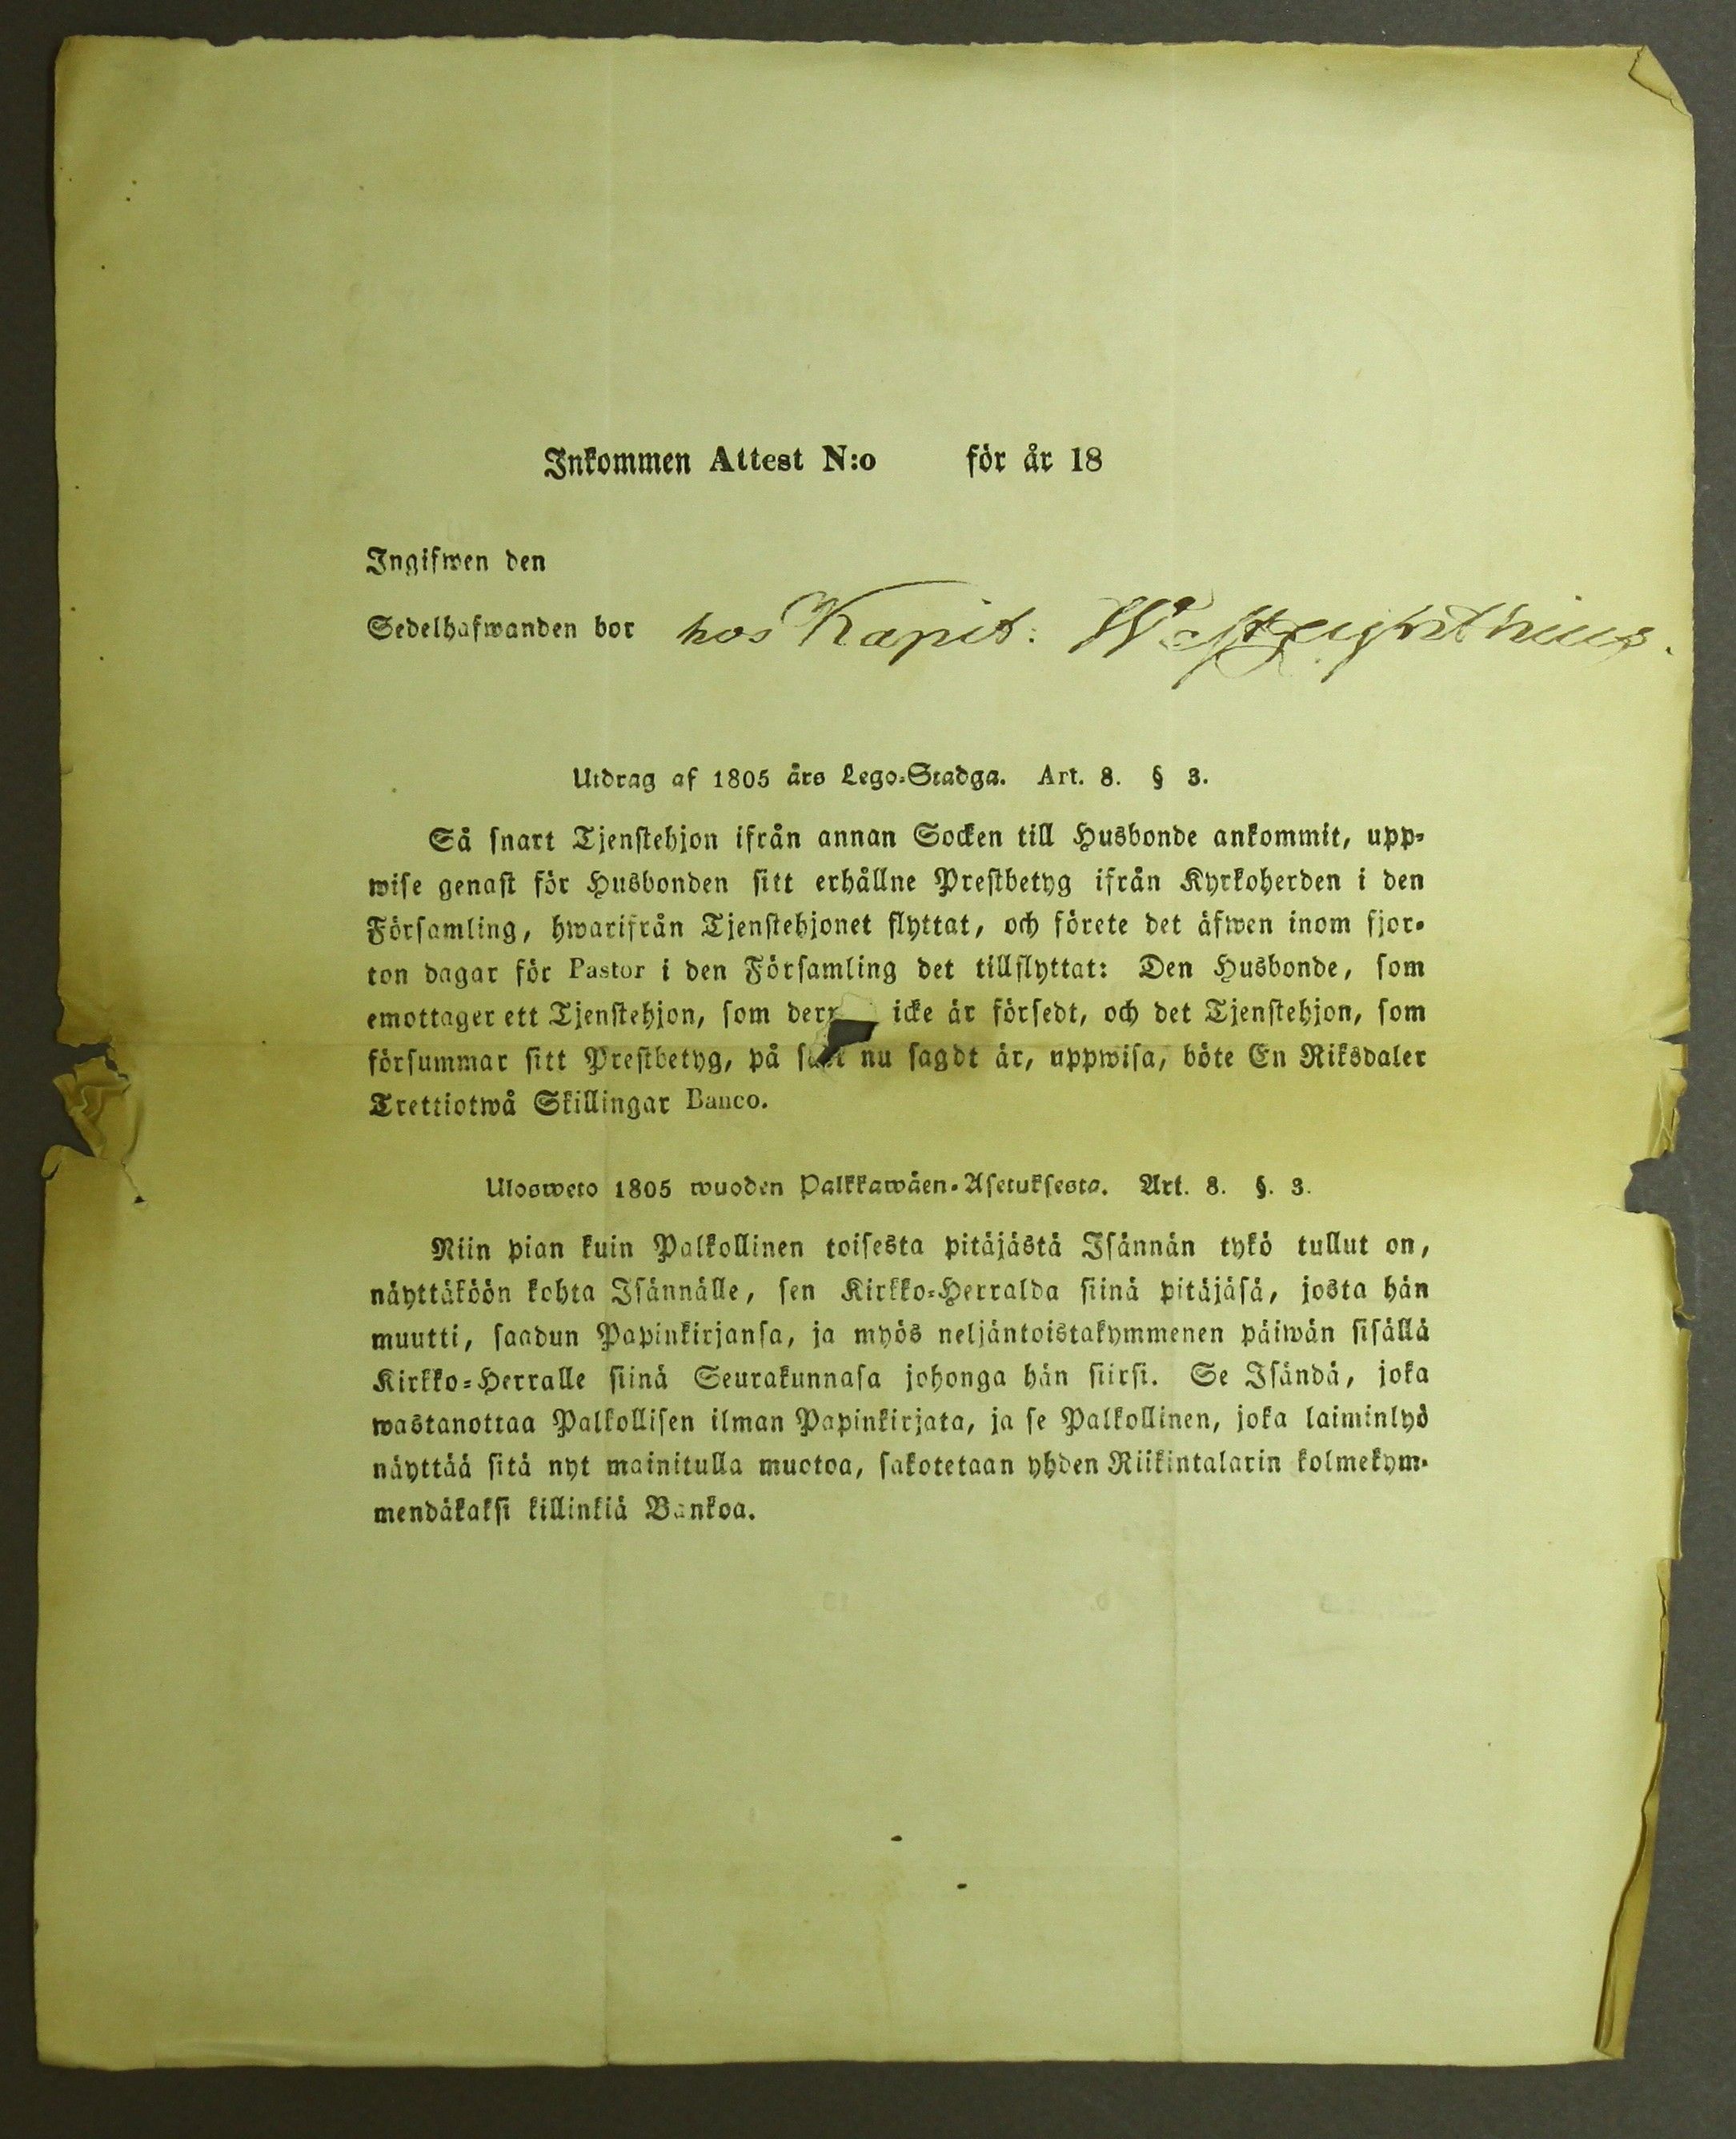 Inkommen Attest N:o för år 18
Ingifwen den
Sedelhafwanden bor hos Kapit:
Utdrag af 1805 års Lego-Stadga. Art. 8. § 3.
Så snart Tjenstehjon ifrån annan Socken till Husbonde ankommit, upp-
wise genast för Husbonden sitt erhållne Prestbetyg ifrån Kyrkoherden i den
Församling, hwarifrån Tjenstehjonet flyttat, och förete det äfwen inom fjor-
ton dagar för Pastor i den Församling det tillflyttat: Den Husbonde, som
emottager ett Tjenstehjon, som icke är försedt, och det Tjenstehjon, som
försummar sitt Prestbetyg, på nu sagdt är, uppwisa, böte En Riksdaler
Trettiotwå Skillingar Banco.
Ulosweto 1805 wuoden Palkkawäen-Asetuksesta. Art. 8. §. 3.
Niin pian kuin Palkollinen toisesta pitäjästä Isännän tykö tullut on,
näyttäköön kohta Isännälle, sen Kirkko-Herralda siinä pitäjäsä, josta hän
muutti, saadun Papinkirjansa, ja myös neljäntoistakymmenen päiwän sisällä
Kirkko-Herralle siinä Seurakunnasa johonga hän siirsi. Se Isändä, joka
wastanottaa Palkollisen ilman Papinkirjata, ja se Palkollinen, joka laiminlyö
näyttää sitä nyt mainitulla muotoa, sakotetaan yhden Riikintalarin kolmekym-
mendäkaksi killinkiä Bankoa.